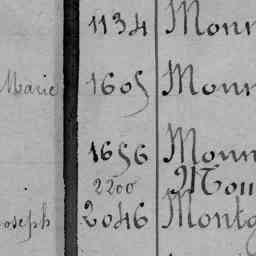 1134 Monn
Marie 1605 Monn
1656 Monn
2200 Mou
Joseph 2046 Montg